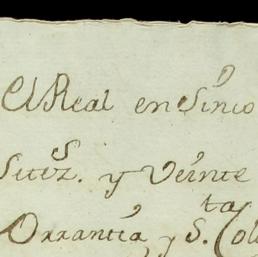 El Real en Sinco
Setez. y Veinte
Orrantia, y S.ta Col